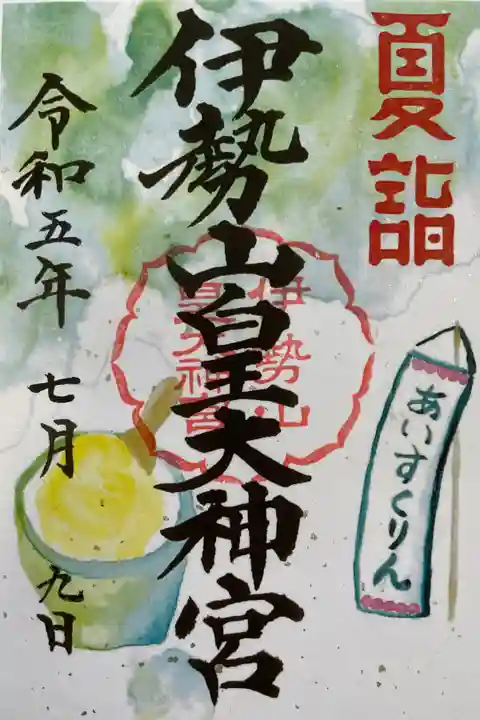 夏詣
あいすくりん
伊勢山皇大神宮
伊勢山
皇大神宮
令和五年 七月 九日